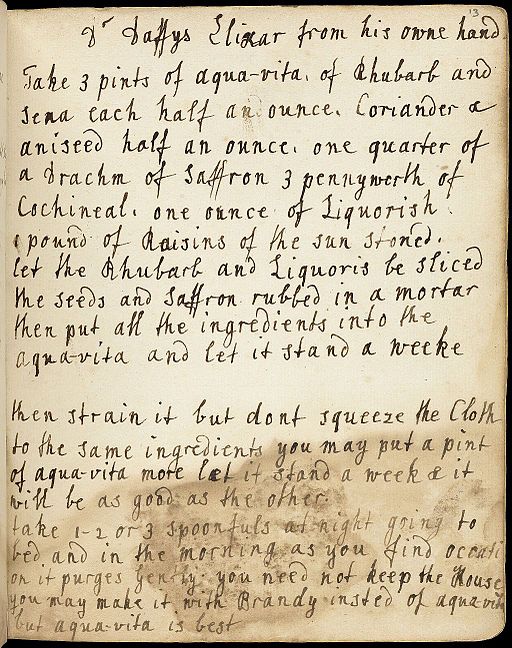 13
Dr Daffys Elixar from his owne hand
Take 3 pints of aqua-vita, of Rhubarb and
sena each half an ounce, Coriander &
aniseed half an ounce, one quarter of
a Drachm of Saffron 3 pennyworth of
Cochineal, one ounce of Liquorish
1 pound of Raisins of the sun stoned,
let the Rhubarb and Liquoris be sliced
the seeds and Saffron rubbed in a mortar
then put all the ingredients into the
aqua-vita and let it stand a weeke
then strain it but dont squeeze the Cloth
to the same ingredients you may put a pint
of aqua-vita more let it stand a week & it
will be as good as the other.
take 1-2 or 3 spoonfuls at night going to
bed and in the morning as you find occati
on it purges Gently you need not keep the House
you may make it with Brandy insted of aqua-vita
but aqua-vita is best